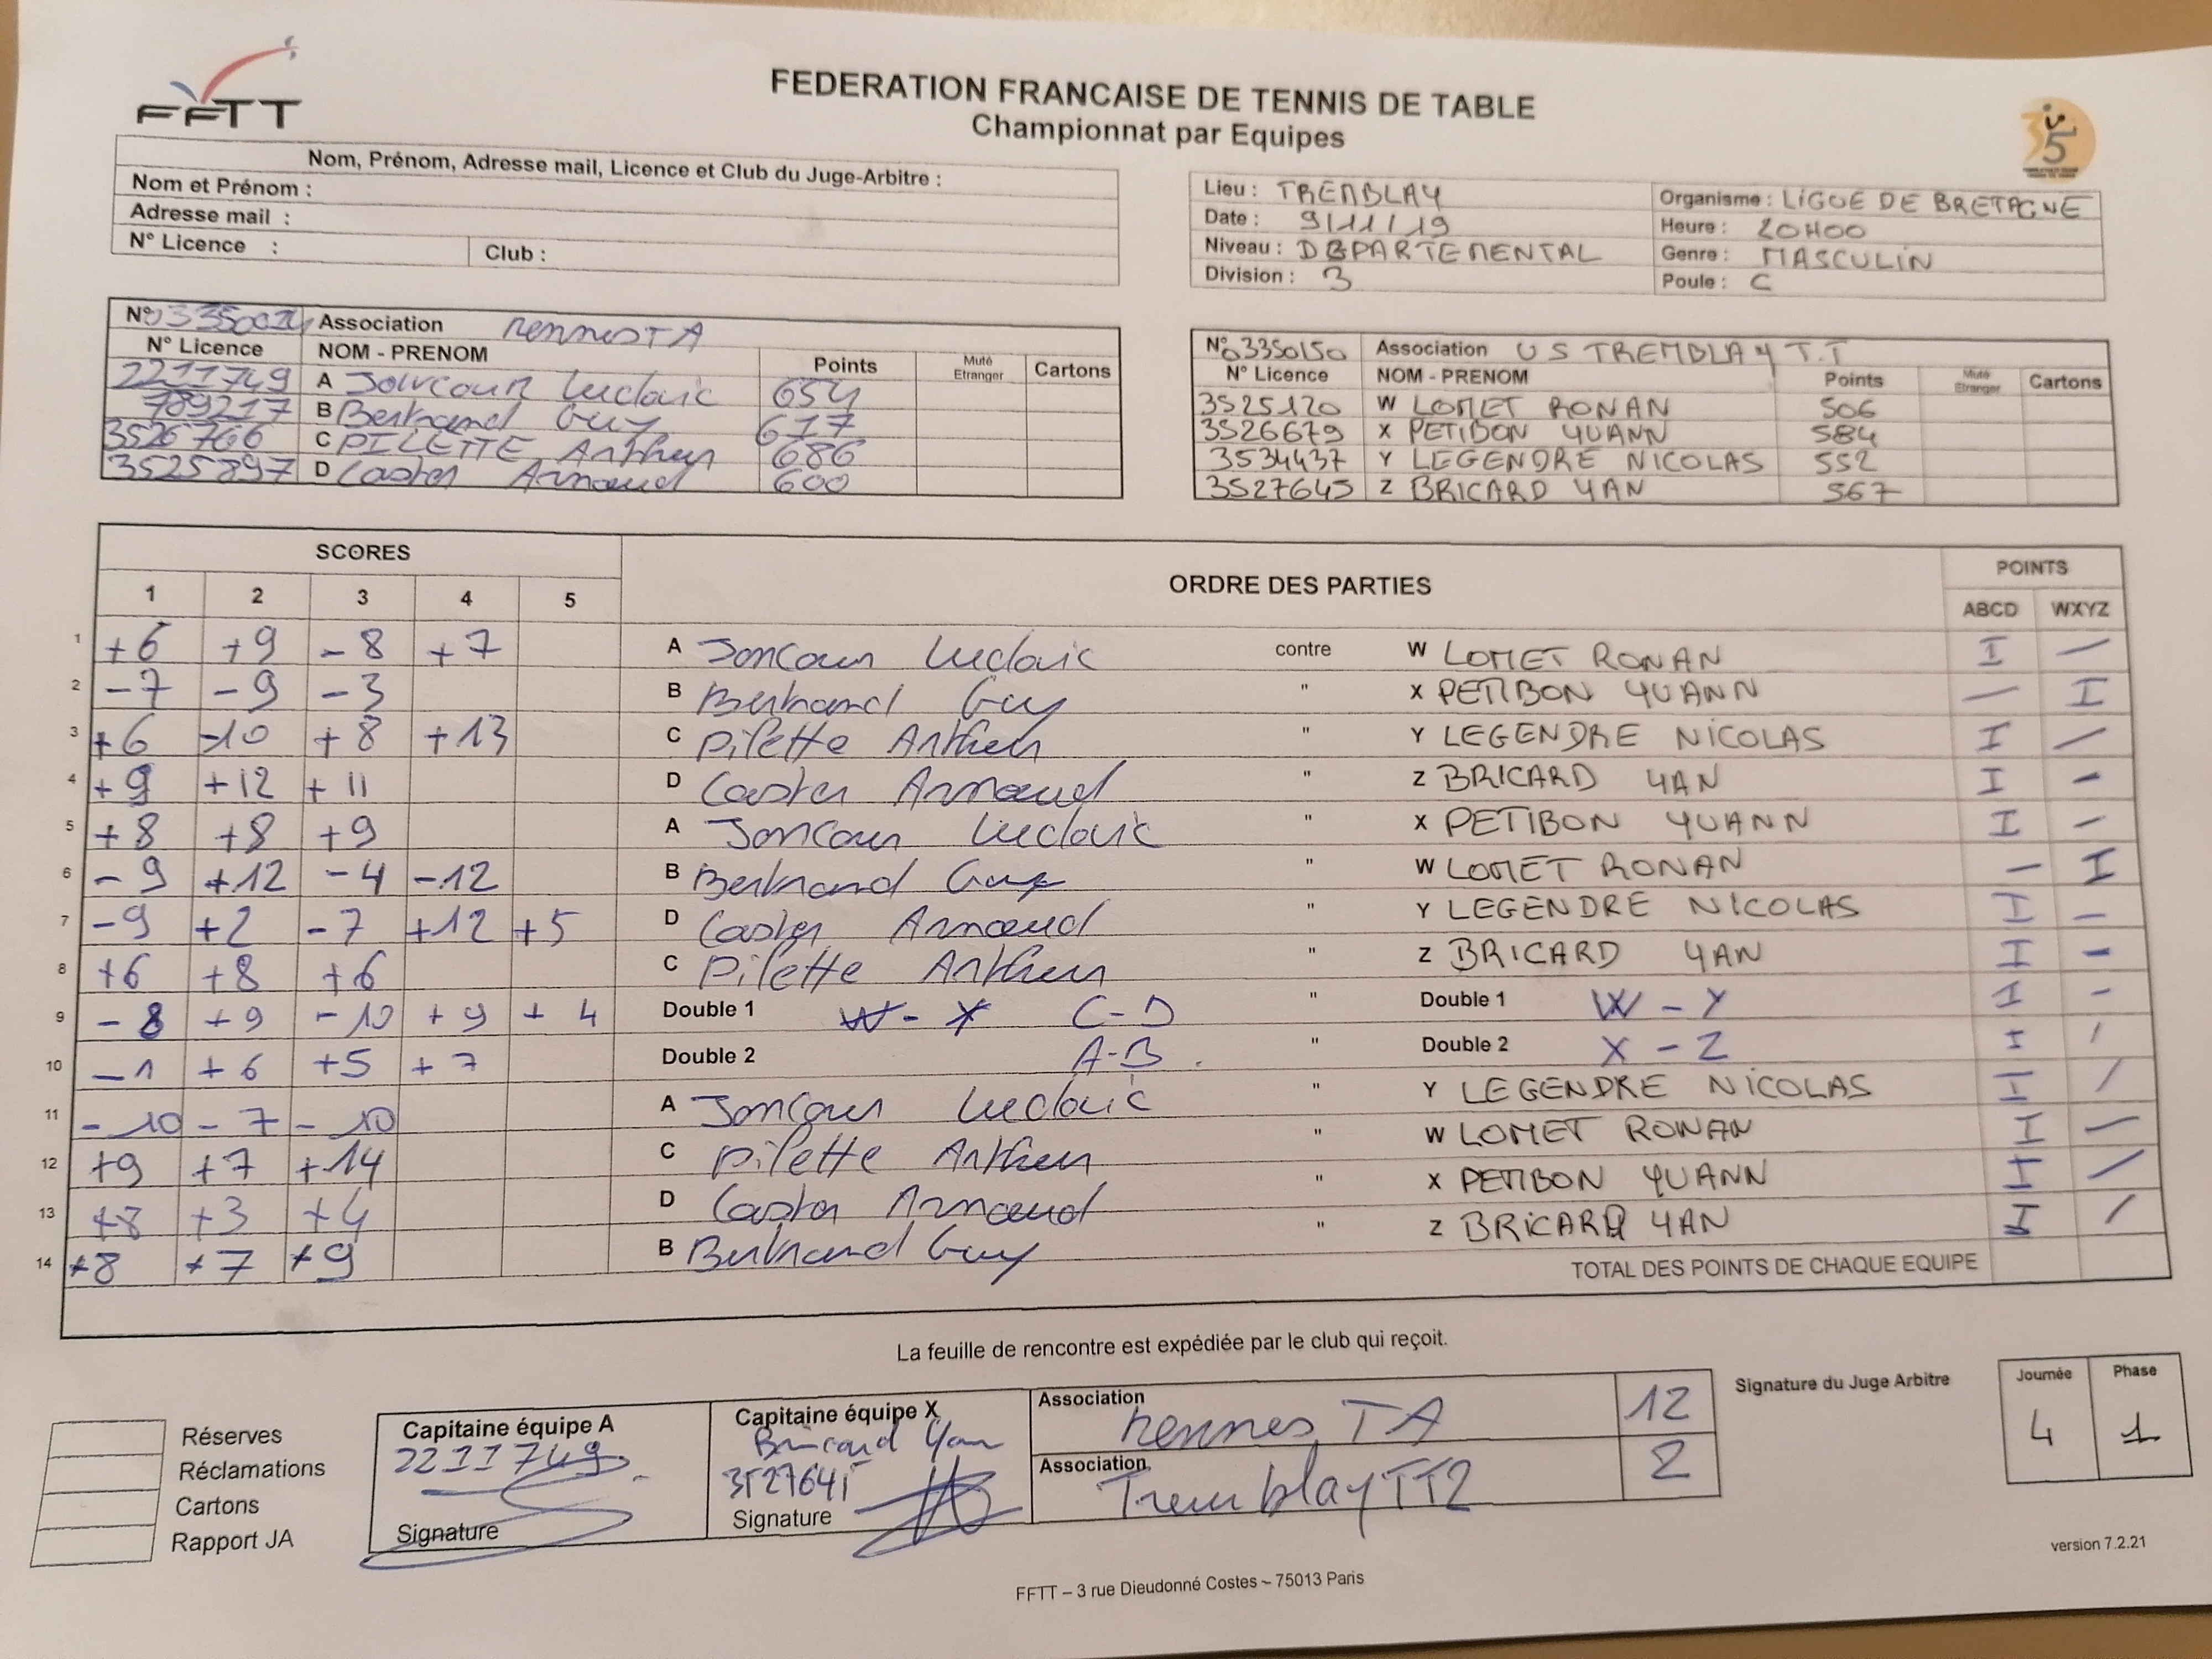 FFTT
FEDERATION FRANCAISE DE TENNIS DE TABLE
Championnat par Equipes
35
Nom, Prénom, Adresse mail, Licence et Club du Juge-Arbitre :
Nom et Prénom :
Adresse mail :
N° Licence : Club :
Lieu : TREMBLAY Organisme : LIGUE DE BRETAGNE
Date : 9/11/19 Heure : 20H00
Niveau : DEPARTEMENTAL Genre : MASCULIN
Division : 3 Poule : C
N° 03350024 Association Rennes TA
N° Licence NOM - PRENOM Points Muté Etranger Cartons
2211749 A Joncour Ludovic 654
789217 B Bertrand Guy 617
3526766 C PILETTE Anthen 686
3525897 D Coster Arnaud 600
N° 03350150 Association US TREMBLAY T.T
N° Licence NOM - PRENOM Points Muté Etranger Cartons
3525120 W LOMET RONAN 506
3526679 X PETIBON YUANN 584
3534437 Y LEGENDRE NICOLAS 552
3527645 Z BRICARD YAN 567
SCORES ORDRE DES PARTIES POINTS
1 2 3 4 5 ABCD WXYZ
1 +6 +9 -8 +7 A Joncour Ludovic contre W LOMET RONAN I /
2 -7 -9 -3 B Bertrand Guy " X PETIBON YUANN / I
3 +6 -10 +8 +13 C Pilette Anthen " Y LEGENDRE NICOLAS I /
4 +9 +12 +11 D Coster Arnaud " Z BRICARD YAN I -
5 +8 +8 +9 A Joncour Ludovic " X PETIBON YUANN I -
6 -9 +12 -4 -12 B Bertrand Guy " W LOMET RONAN - I
7 -9 +2 -7 +12 +5 D Coster Arnaud " Y LEGENDRE NICOLAS I -
8 +6 +8 +6 C Pilette Anthen " Z BRICARD YAN I -
9 -8 +9 -10 +9 +4 Double 1 W - X C-D " Double 1 W - Y I -
10 -1 +6 +5 +7 Double 2 A-B " Double 2 X - Z I /
11 -10 -7 -10 A Joncour Ludovic " Y LEGENDRE NICOLAS I /
12 +9 +7 +14 C Pilette Anthen " W LOMET RONAN I /
13 +8 +3 +4 D Coster Arnaud " X PETIBON YUANN I /
14 +8 +7 +9 B Bertrand Guy " Z BRICARD YAN I /
TOTAL DES POINTS DE CHAQUE EQUIPE
La feuille de rencontre est expédiée par le club qui reçoit.
Réserves
Réclamations
Cartons
Rapport JA
Capitaine équipe A
2211749
Signature
Capitaine équipe X
Bricard Yan
3527645
Signature
Association Rennes TA 12
Association Tremblay TT2 2
Signature du Juge Arbitre
Journée Phase
4 1
version 7.2.21
FFTT – 3 rue Dieudonné Costes – 75013 Paris